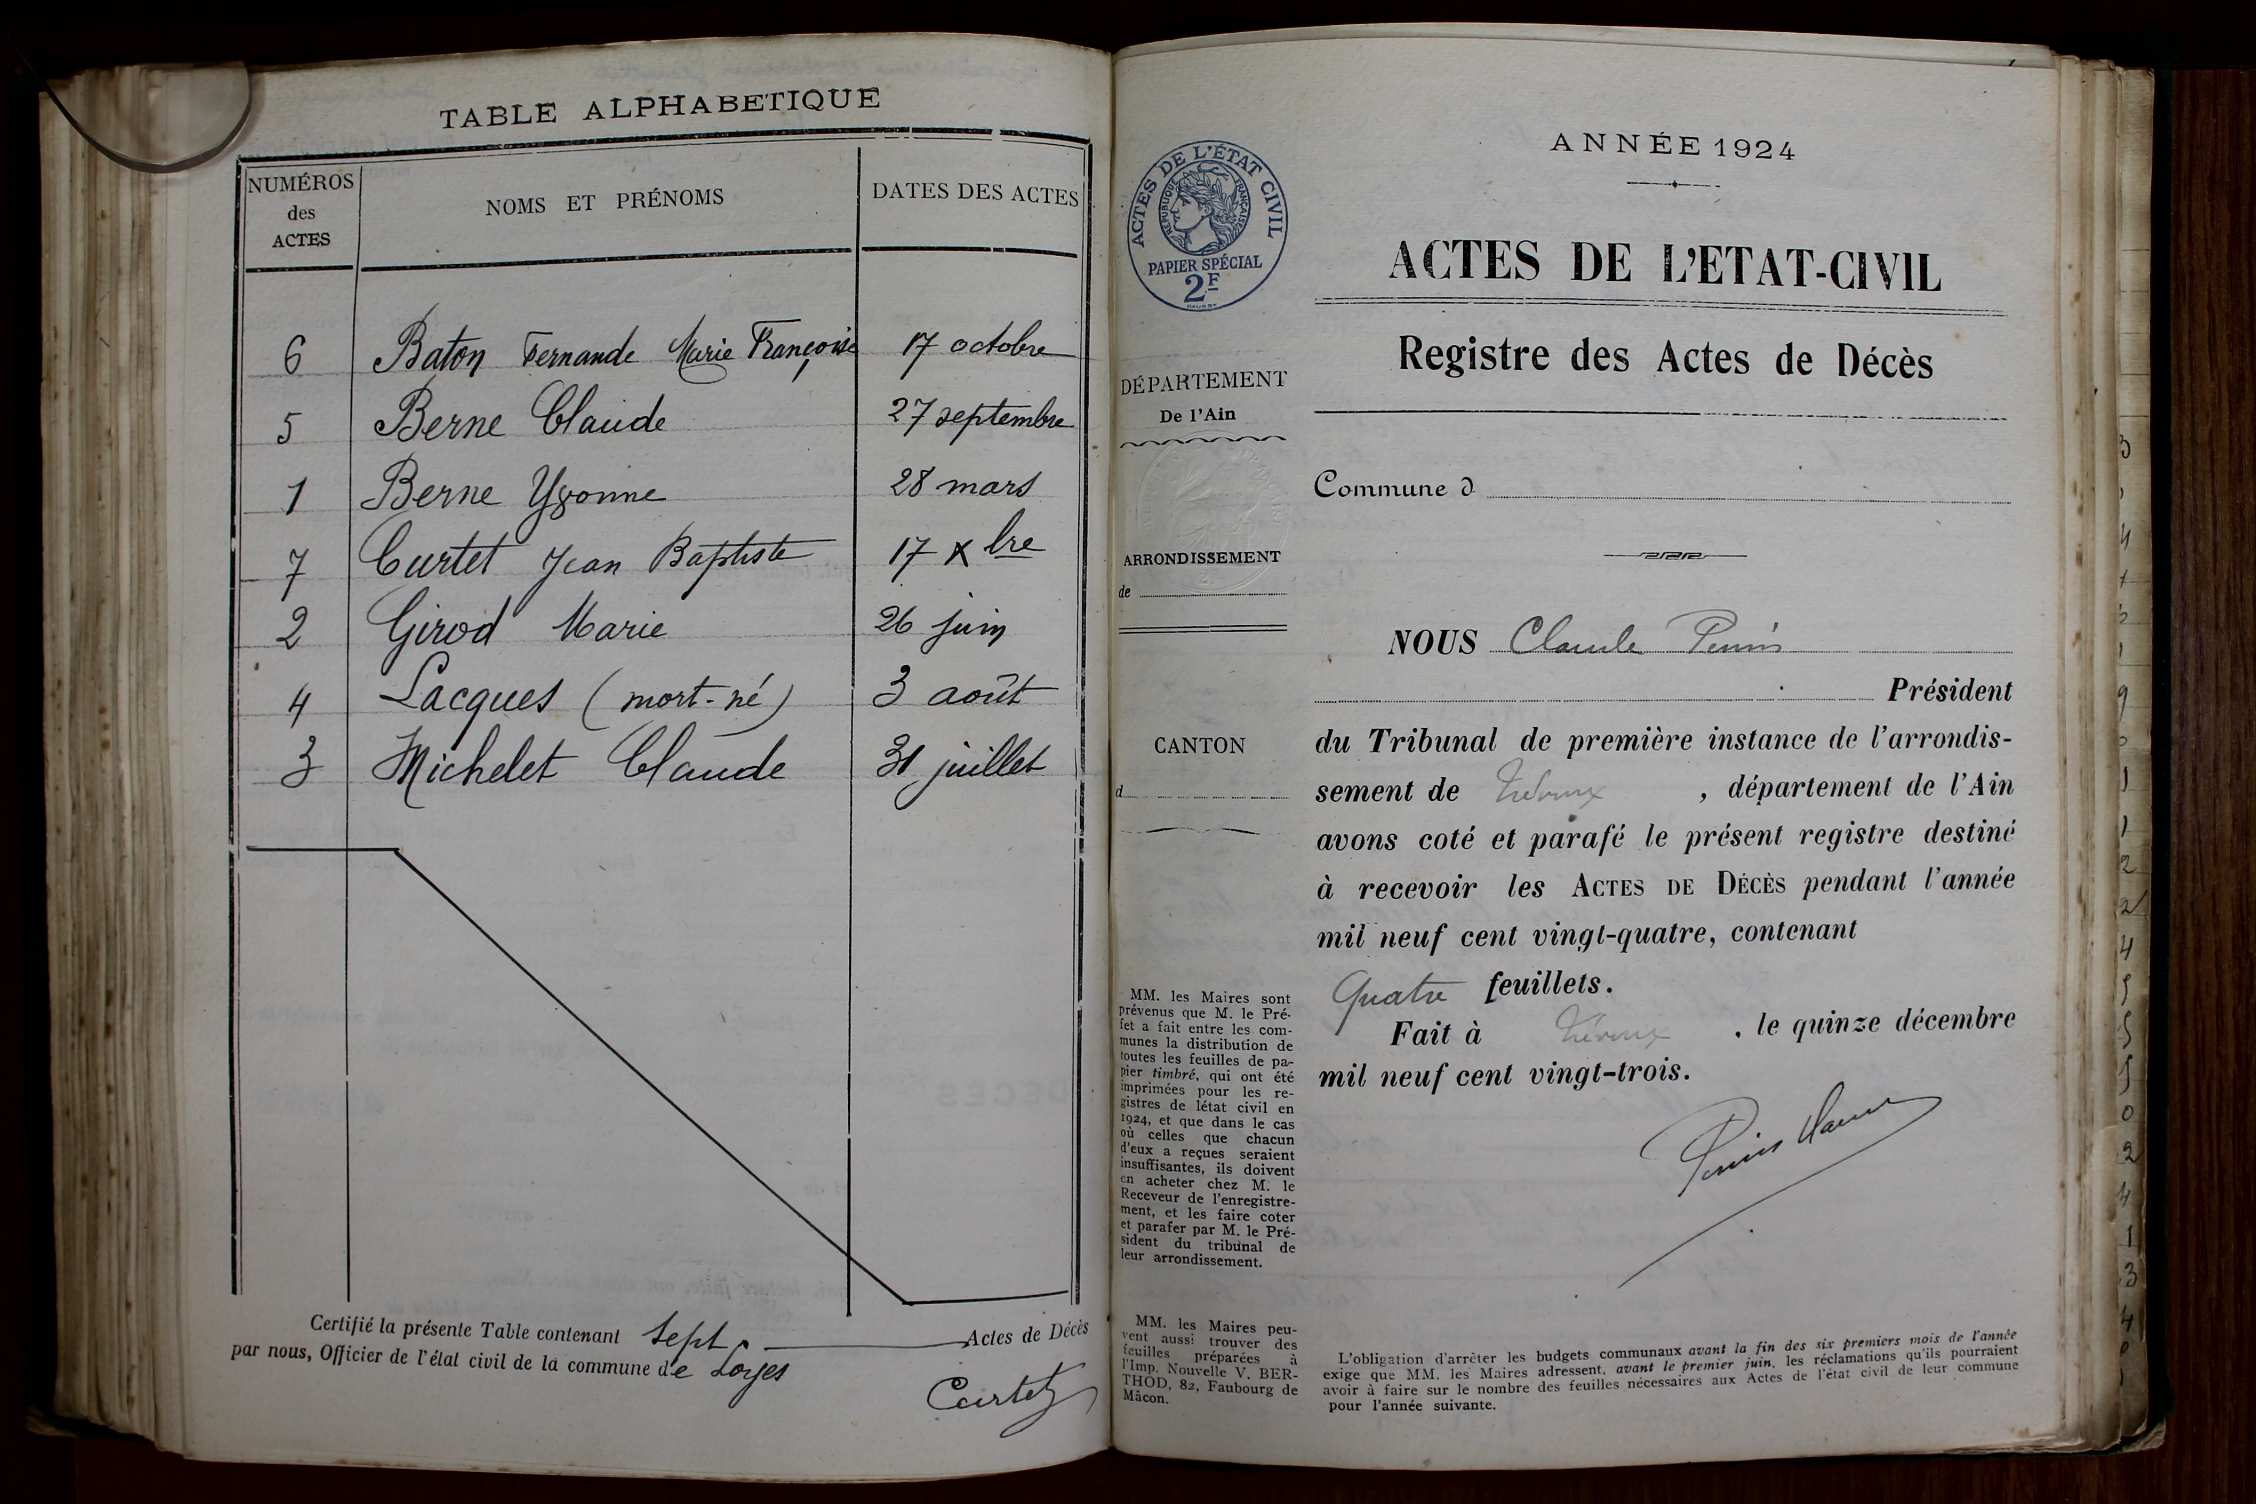 TABLE ALPHABETIQUE
NUMÉROS
des
ACTES
NOMS ET PRÉNOMS
DATES DES ACTES
6 Baton Fernande Marie Françoise 17 octobre
5 Berne Claude 27 septembre
1 Berne Yvonne 28 mars
7 Curtet Jean Baptiste 17 Xbre
2 Girod Marie 26 juin
4 Lacques (mort-né) 3 août
3 Michelet Claude 31 juillet
Certifié la présente Table contenant Sept Actes de Décès
par nous, Officier de l'état civil de la commune de Loyes
Curtet
ACTES DE L'ÉTAT CIVIL
RÉPUBLIQUE FRANÇAISE
PAPIER SPÉCIAL
2F
DÉPARTEMENT
De l'Ain
ARRONDISSEMENT
de
CANTON
d
MM. les Maires sont
prévenus que M. le Pré-
fet a fait entre les com-
munes la distribution de
toutes les feuilles de pa-
pier timbré, qui ont été
imprimées pour les re-
gistres de létat civil en
1924, et que dans le cas
où celles que chacun
d'eux a reçues seraient
insuffisantes, ils doivent
en acheter chez M. le
Receveur de l'enregistre-
ment, et les faire coter
et parafer par M. le Pré-
sident du tribunal de
leur arrondissement.
MM. les Maires peu-
vent aussi trouver des
feuilles préparées à
l'Imp. Nouvelle V. BER-
THOD, 82, Faubourg de
Mâcon.
ANNÉE 1924
ACTES DE L'ETAT-CIVIL
Registre des Actes de Décès
Commune d
NOUS Claude
Président
du Tribunal de première instance de l'arrondis-
sement de Trévoux, département de l'Ain
avons coté et parafé le présent registre destiné
à recevoir les ACTES DE DÉCÈS pendant l'année
mil neuf cent vingt-quatre, contenant
Quatre feuillets.
Fait à Trévoux, le quinze décembre
mil neuf cent vingt-trois.
L'obligation d'arrêter les budgets communaux avant la fin des six premiers mois de l'année
exige que MM. les Maires adressent, avant le premier juin, les réclamations qu'ils pourraient
avoir à faire sur le nombre des feuilles nécessaires aux Actes de l'état civil de leur commune
pour l'année suivante.